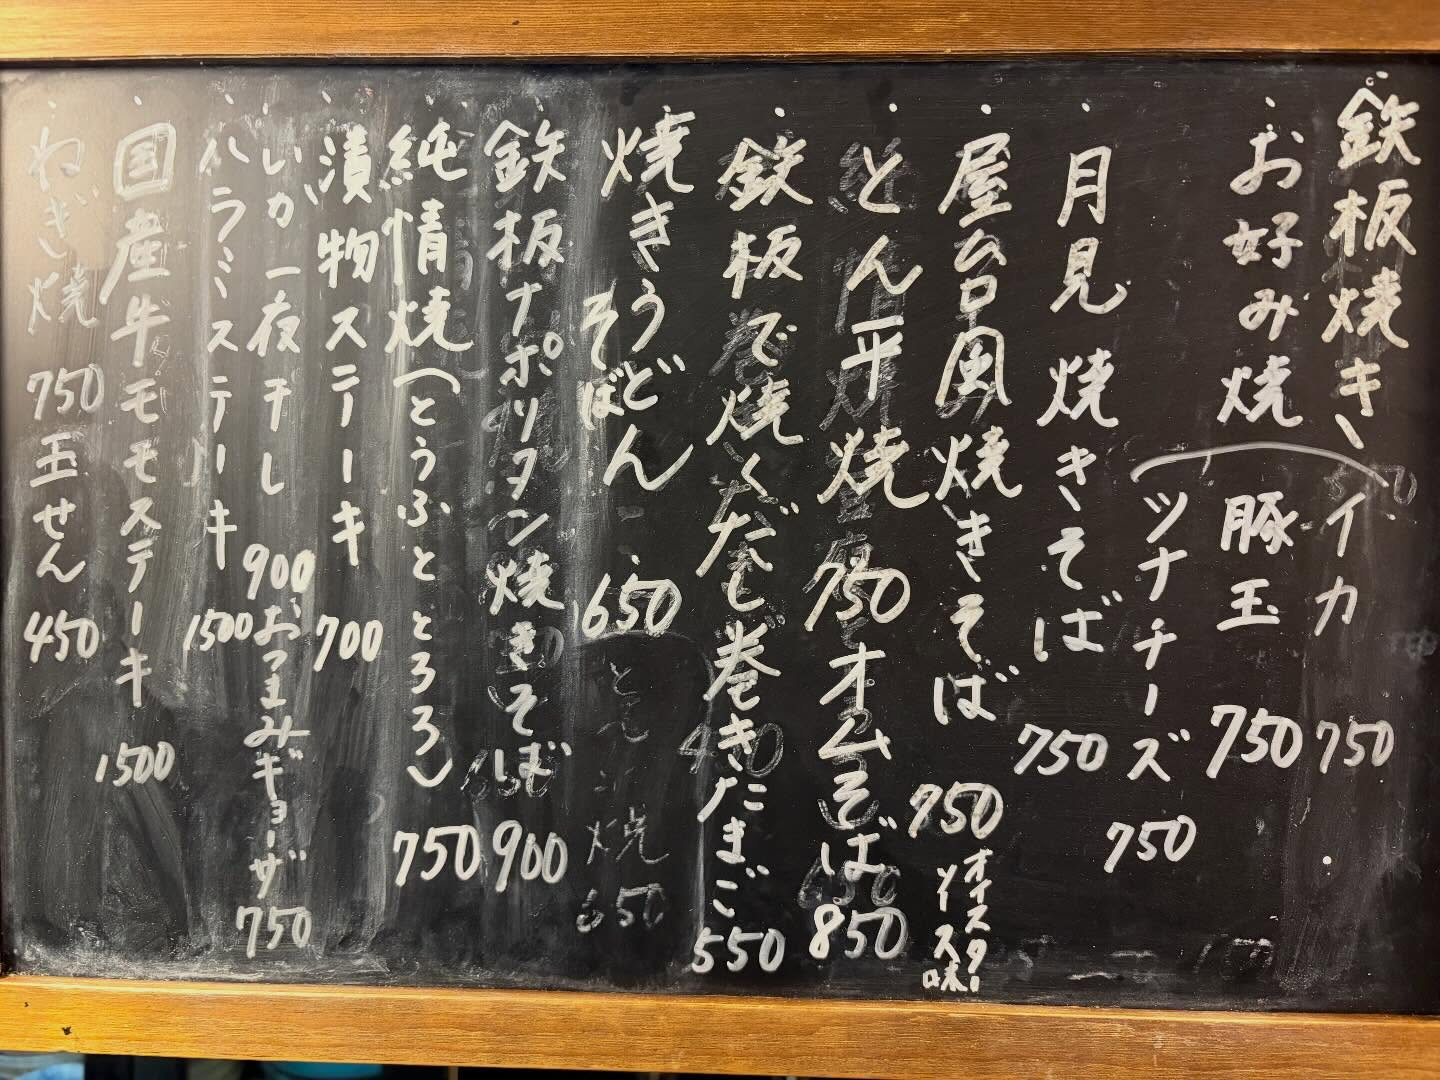 ・鉄板焼き イカ 750
・お好み焼 豚玉 750
ツナチーズ 750
・月見焼きそば 750
・屋台風焼きそば 750 オイスターソース味
・とん平焼 750 オムそば 850
・鉄板で焼くだし巻きたまご 550
・焼きうどん そば 650
・鉄板ナポリタン焼きそば 900
・純情焼(とうふととろろ) 750
・漬物ステーキ 700
・いか一夜干し 900 おつまみギョーザ 750
・ハラミステーキ 1500
・国産牛モモステーキ 1500
・ねぎ焼 750 玉せん 450